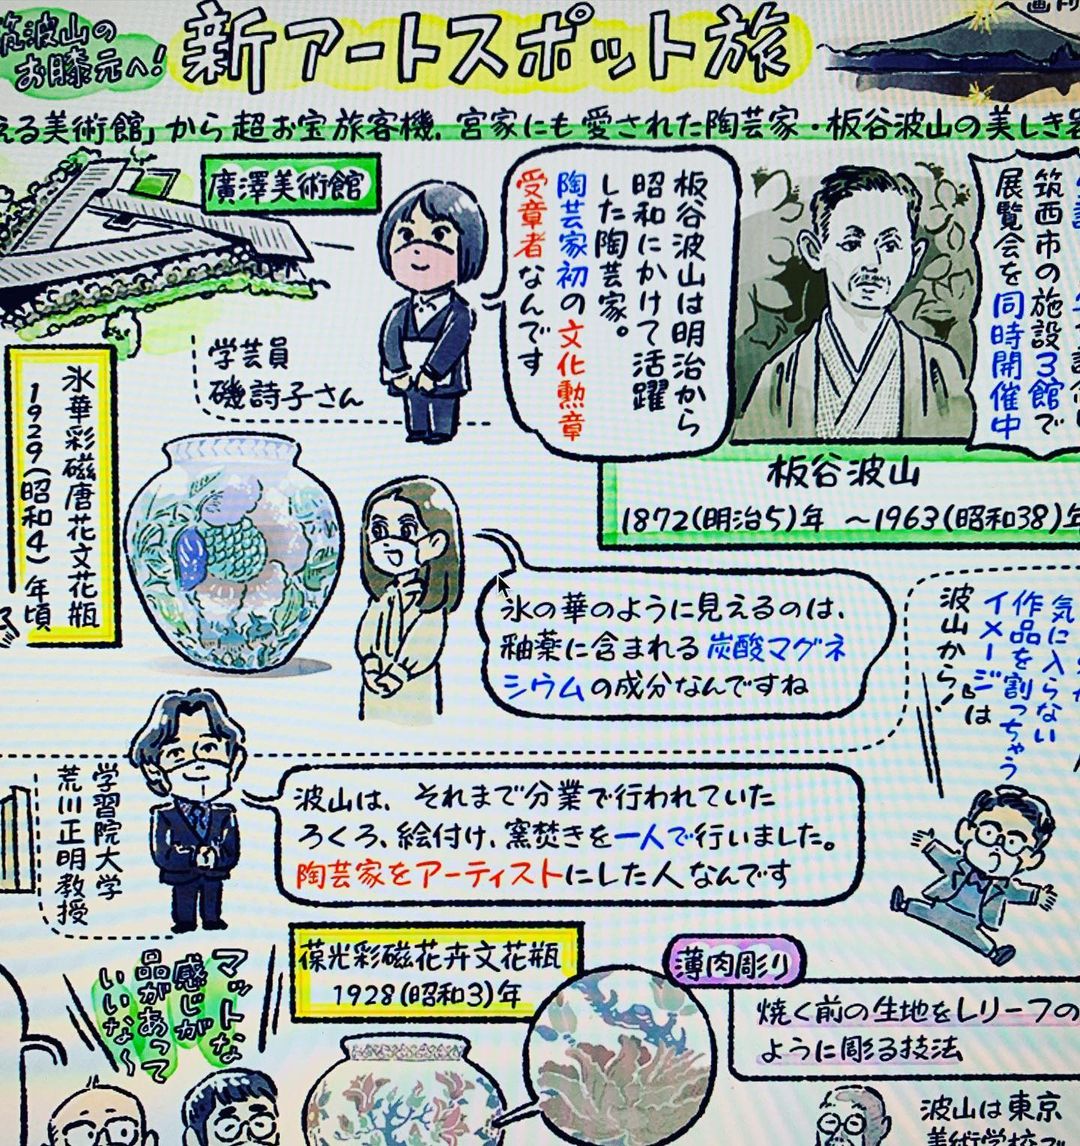 筑波山の
お膝元へ!
新アートスポット旅
える美術館」から超お宝旅客機、宮家にも愛された陶芸家・板谷波山の美しき
廣澤美術館
学芸員
磯詩子さん
板谷波山は明治から
昭和にかけて活躍
した陶芸家。
陶芸家初の文化勲章
受章者なんです
筑西市の施設3館で
展覧会を同時開催中
板谷波山
1872(明治5)年 〜1963(昭和38)年
氷華彩磁唐花文花瓶
1929(昭和4)年頃
氷の華のように見えるのは、
釉薬に含まれる炭酸マグネ
シウムの成分なんですね
気に入らない
作品を割っちゃう
イメージは
波山から!
学習院大学
荒川正明教授
波山は、それまで分業で行われていた
ろくろ、絵付け、窯焚きを一人で行いました。
陶芸家をアーティストにした人なんです
マットな
感じが
品があって
いいな〜
葆光彩磁花卉文花瓶
1928(昭和3)年
薄肉彫り
焼く前の生地をレリーフの
ように彫る技法
波山は東京
美術学校で